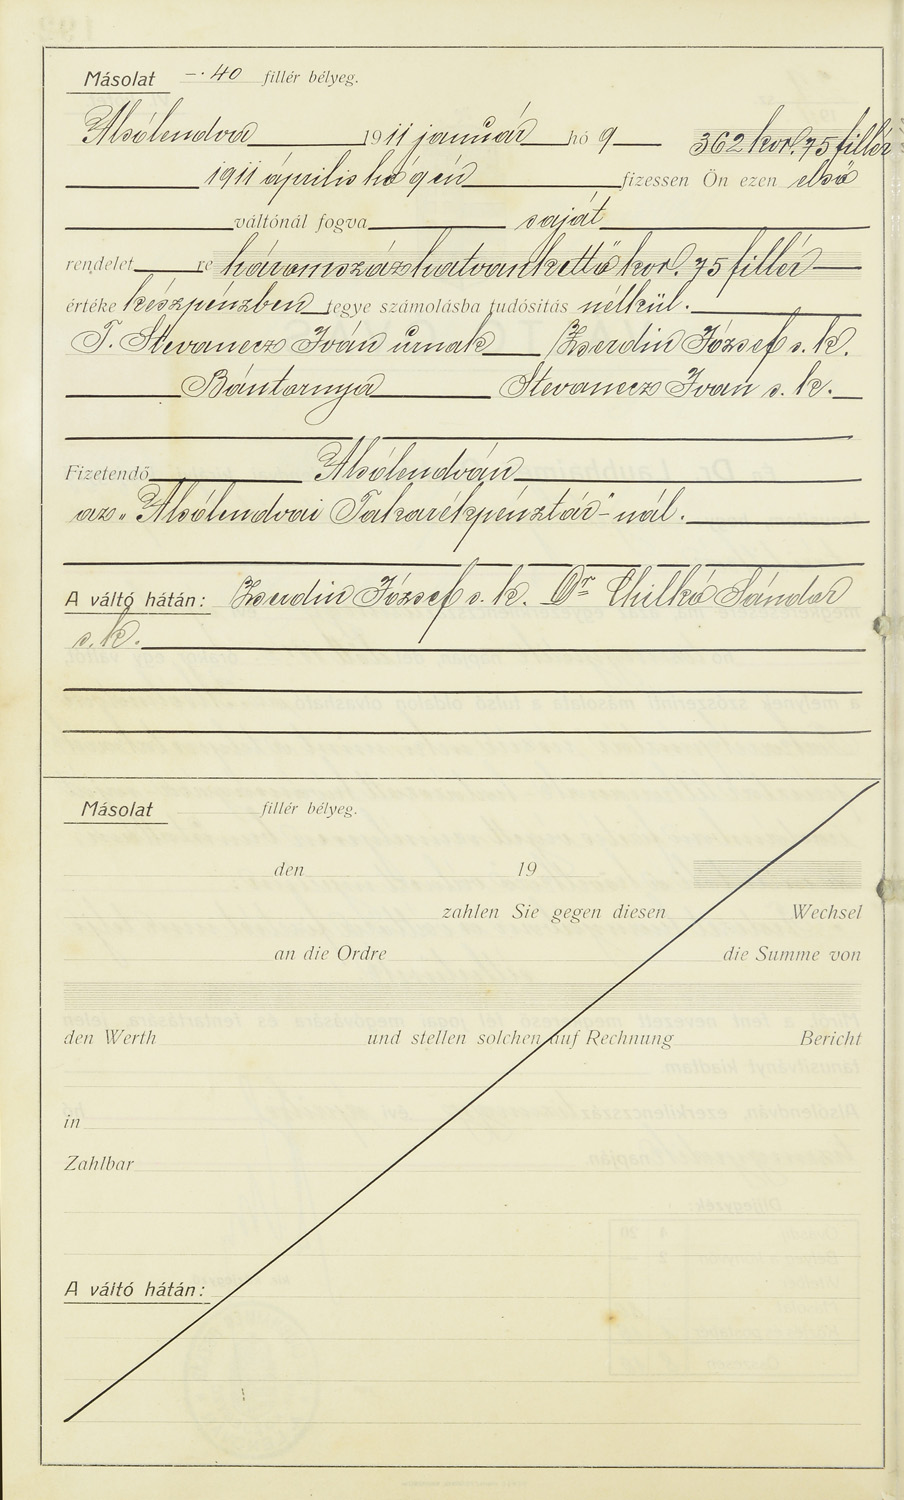 Másolat –·40 fillér bélyeg.
Alsólendva 1911 január hó 9 362 kor. 75 fillér
1911 április hó 9 én fizessen Ön ezen első
váltónál fogva saját
rendelet re háromszázhatvankettő kor. 75 fillér
értéke készpénzben tegye számolásba tudósítás nélkül.
T. Stevanecz Iván úrnak Zserdin József s. k.
Bántornya Stevanecz Ivan s. k.
Fizetendő Alsólendván
az „Alsólendvai Takarékpénztár"-nál.
A váltó hátán: Zserdin József s. k. Dr Chilkó Sándor
s. k.
Másolat fillér bélyeg.
den 19
zahlen Sie gegen diesen Wechsel
an die Ordre die Summe von
den Werth und stellen solchen auf Rechnung Bericht
in
Zahlbar
A váltó hátán: